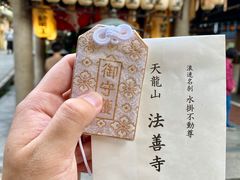 御守
浪速名刹 水掛不動尊
天龍山 法善寺